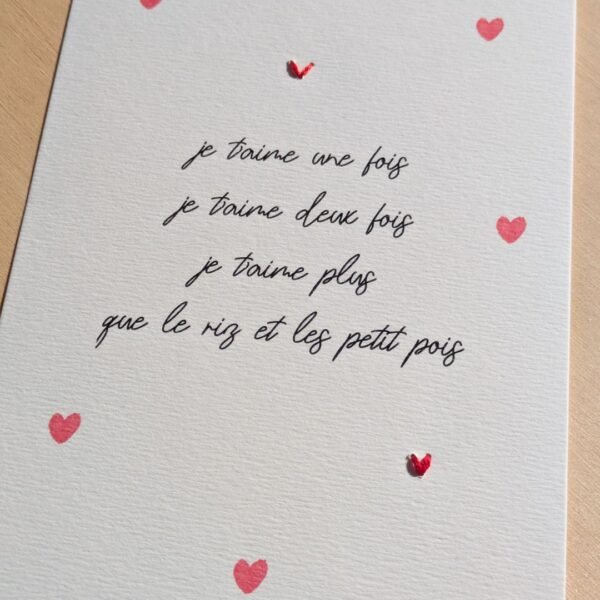 je t'aime une fois
je t'aime deux fois
je t'aime plus
que le riz et les petit pois